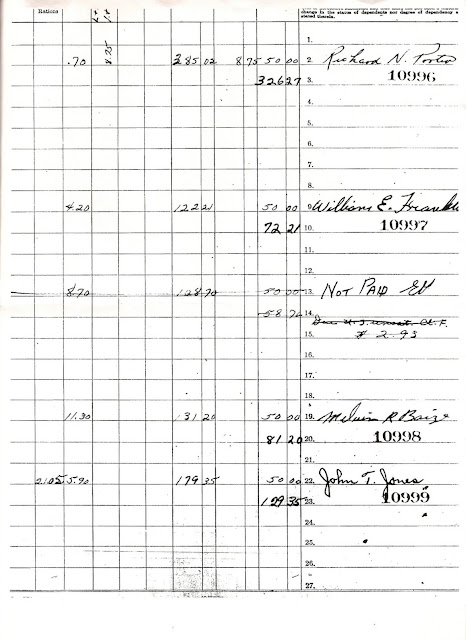 Rations
change in the status of dependents nor degree of dependency
stated therein.
1.
.70 8.25 385 02 8 75 50 00 2. Richard N. Porter
326 27 3. 10996
4.
5.
6.
7.
8.
4.20 122 21 50 00 9. William E. Franklin
72 21 10. 10997
11.
12.
8.70 128 70 50 00 13. NOT PAID
58 70 14. Due U.S.
15. $ 2.93
16.
17.
18.
11.30 131 20 50 00 19. Melvin R Baize
81 20 20. 10998
21.
2105 5.90 179 35 50 00 22. John T. Jones
129 35 23. 10999
24.
25.
26.
27.